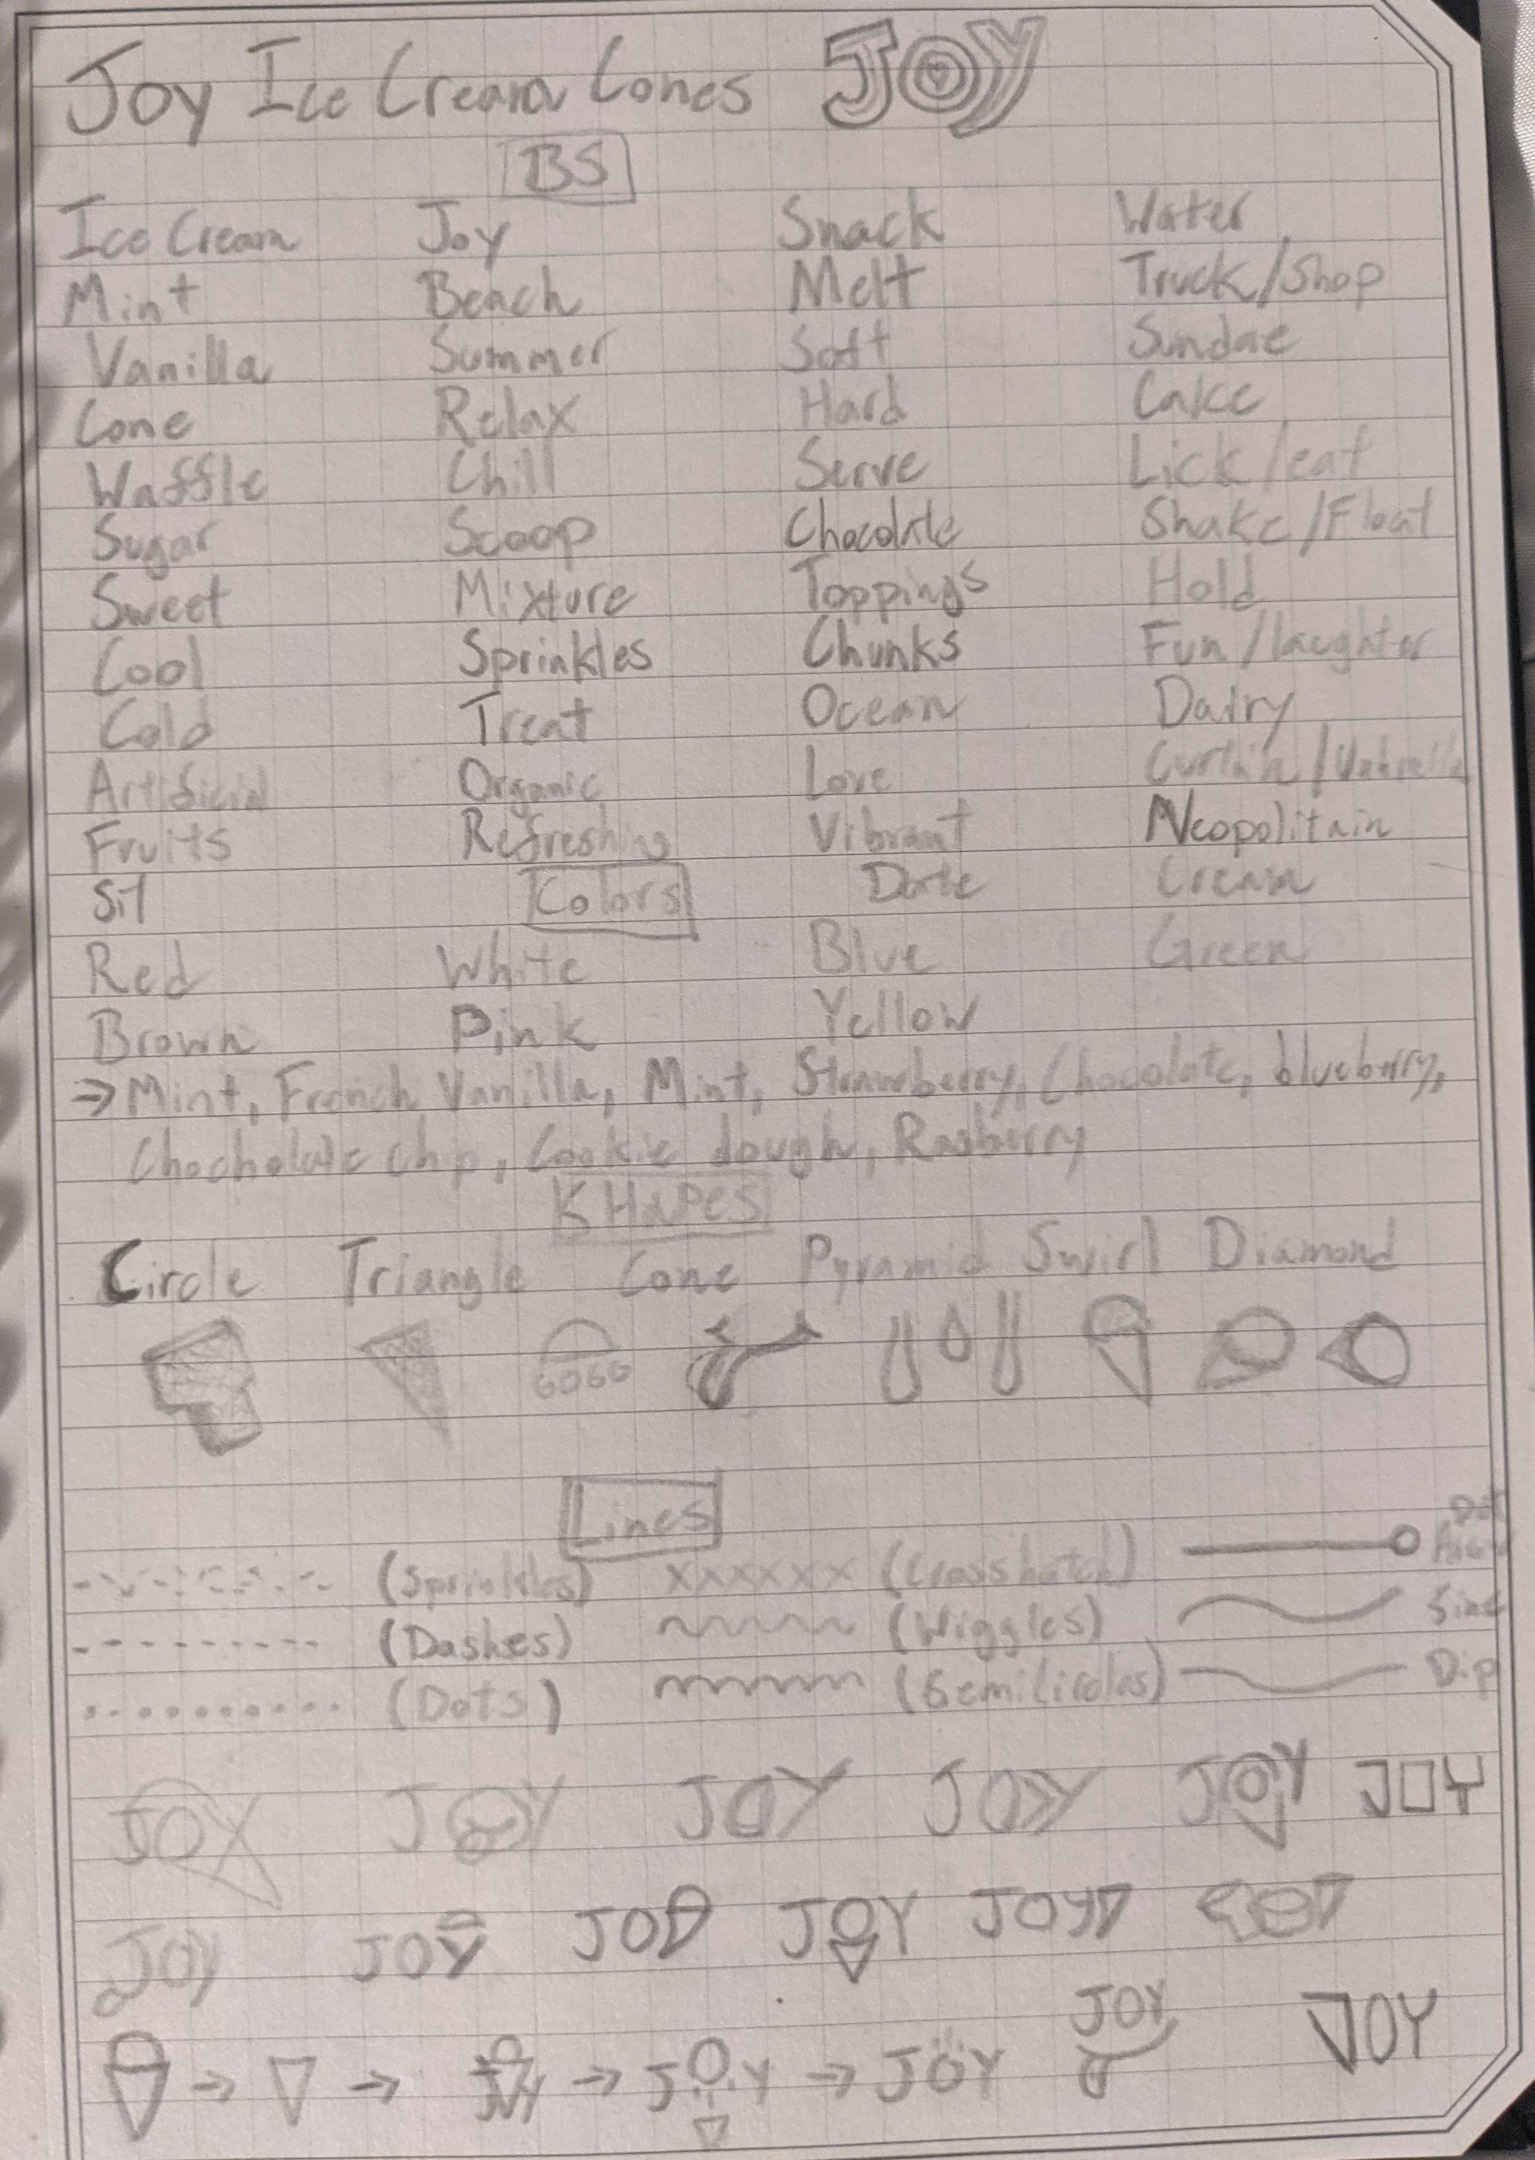 Joy Ice Cream Cones JOY
BS
Ice Cream Joy Snack Water
Mint Beach Melt Truck/Shop
Vanilla Summer Soft Sundae
Cone Relax Hard Cake
Waffle Chill Serve Lick/eat
Sugar Scoop Chocolate Shake/Float
Sweet Mixture Toppings Hold
Cool Sprinkles Chunks Fun/laughter
Cold Treat Ocean Dairy
Artificial Organic Love
Fruits Refreshing Vibrant Neopolitain
Sit Colors Date Cream
Red White Blue Green
Brown Pink Yellow
→ Mint, French Vanilla, Mint, Strawberry, Chocolate, blueberry,
Chocholate chip, Cookie dough, Rasberry
SHAPES
Circle Triangle Cone Pyramid Swirl Diamond
Lines
(Sprinkles) xxxxxx (Crosshatch) Dot
(Dashes) (Wiggles) Sine
(Dots) (Semicircles) Dip
JOY JOY JOY JOY JOY JOY
JOY JOY JO JOY JOY
JOY → JOY JOY JOY